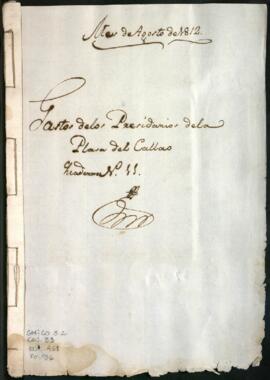 Mes de Agosto de 1812.
Gastos delos Presidarios dela
Plasa del Callao
Quaderno Nº. 11.